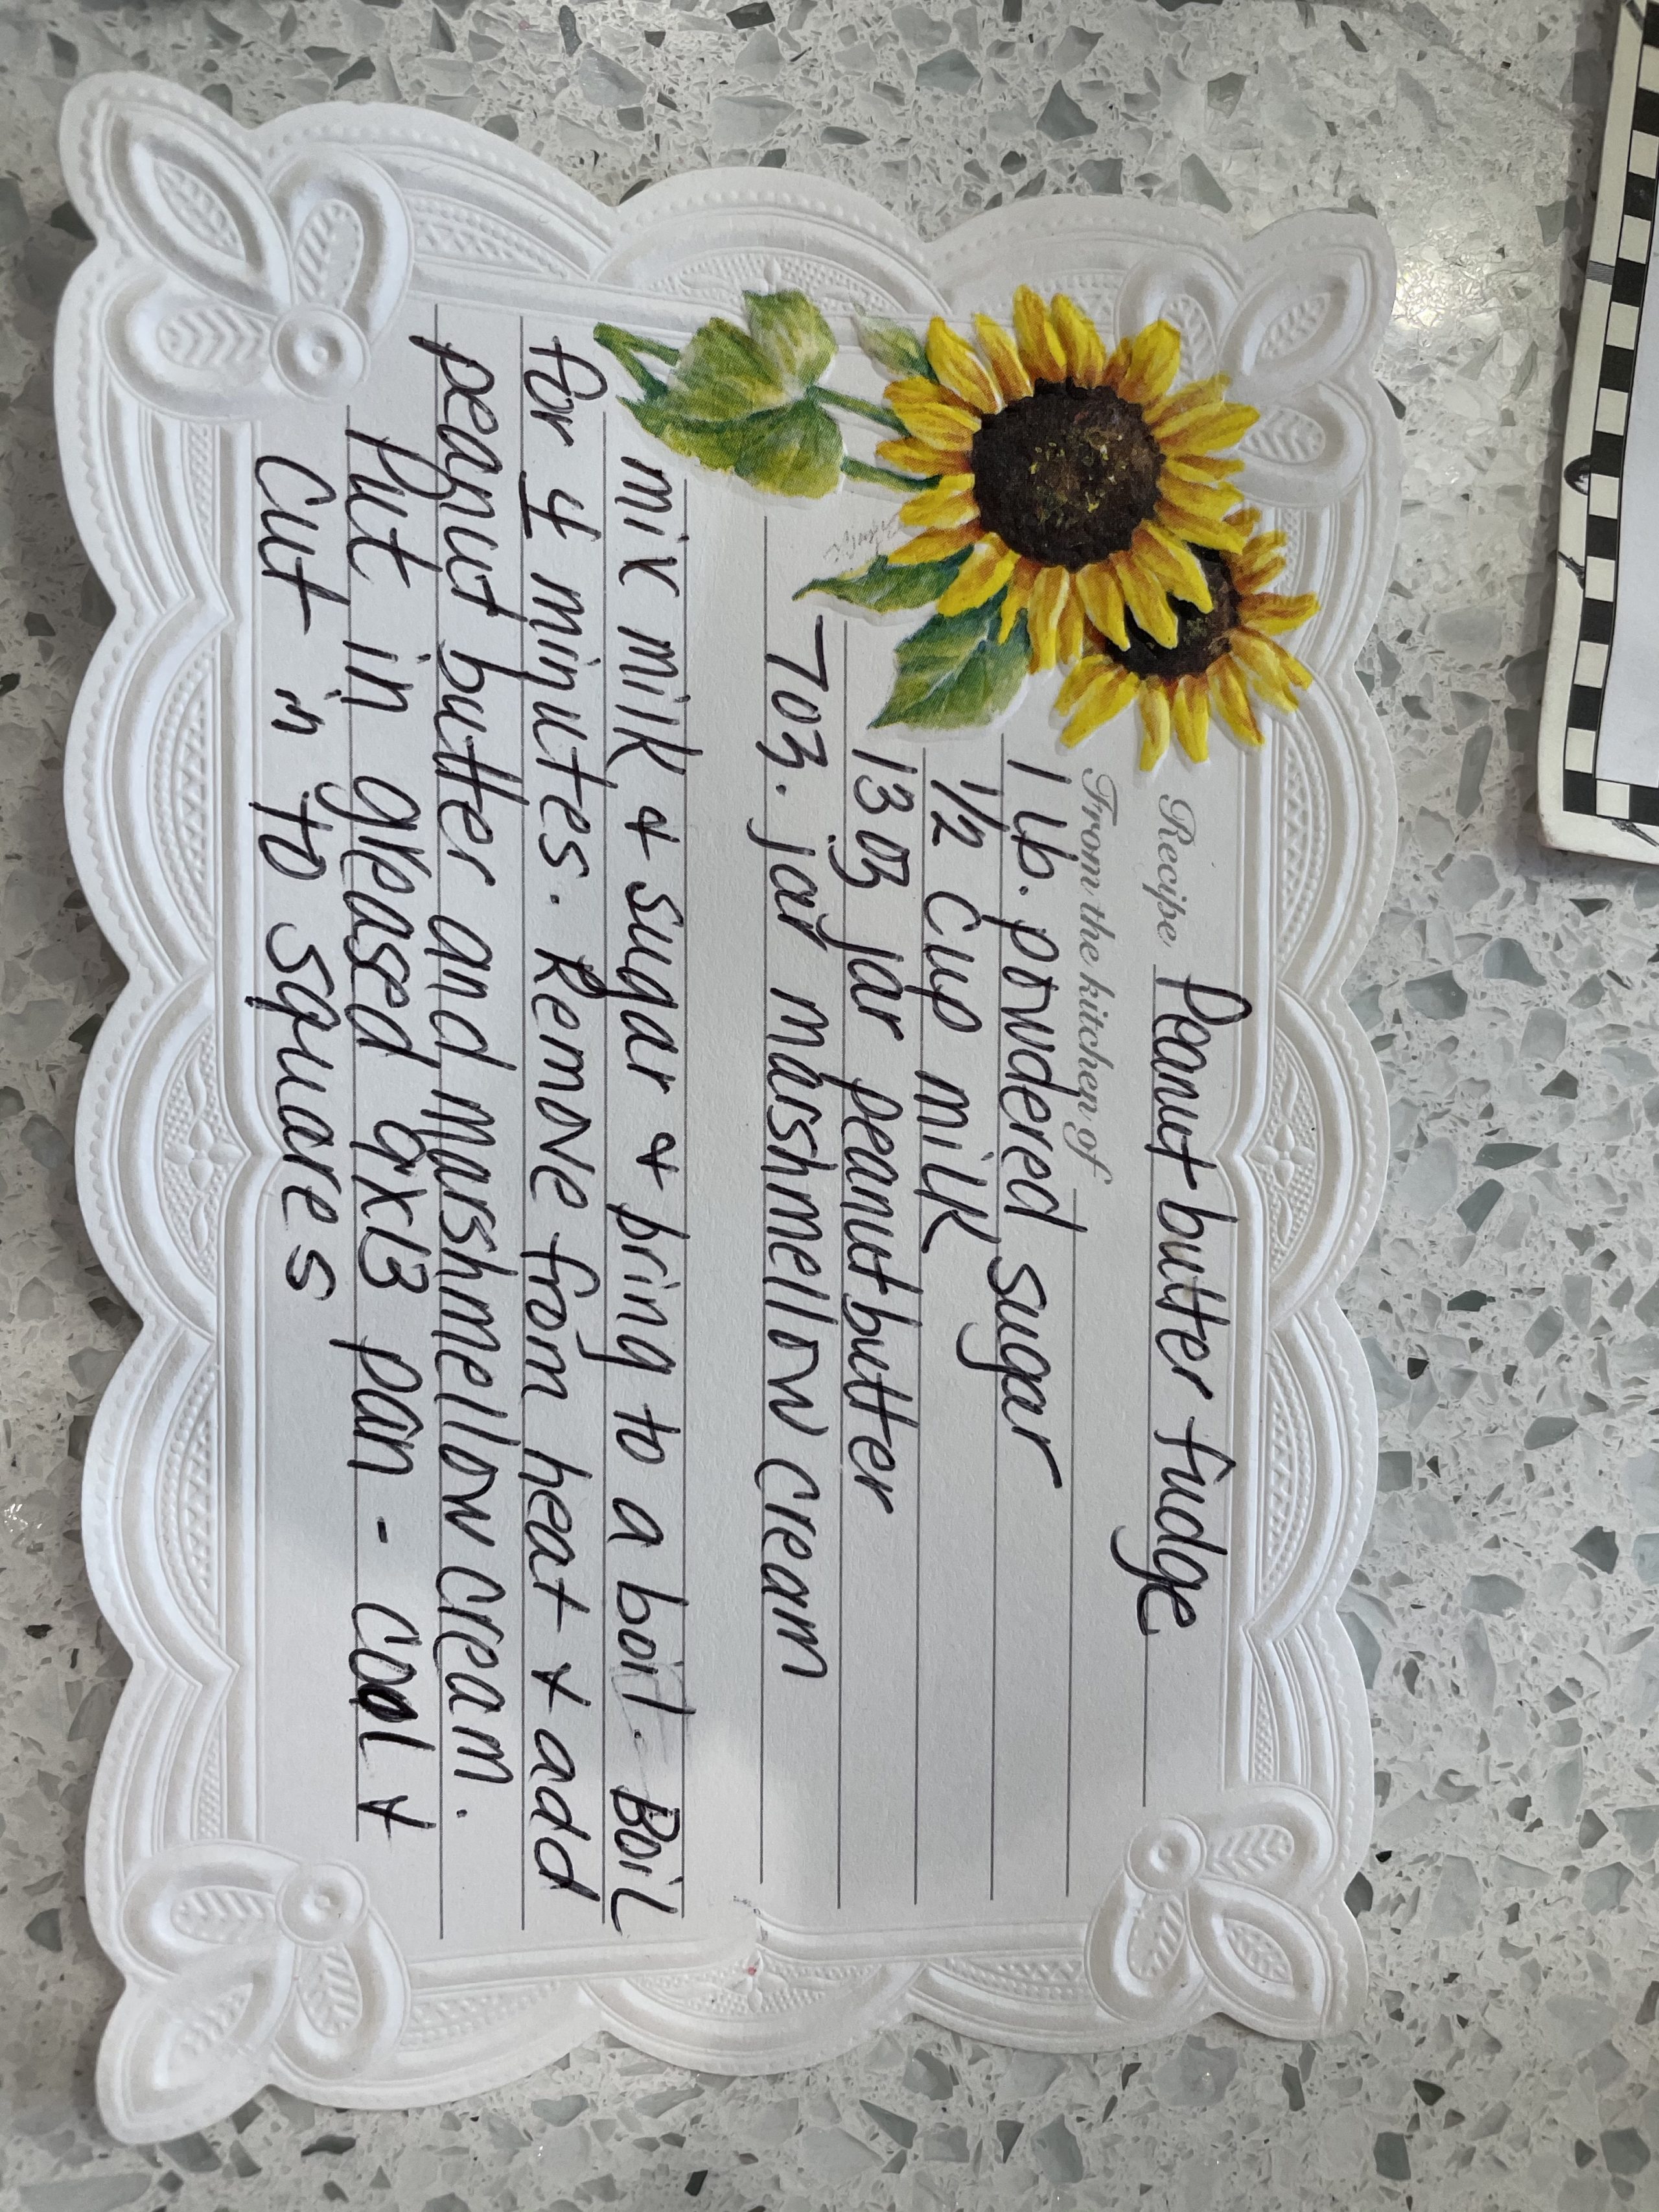 Recipe Peanut butter fudge
From the kitchen of
1 lb. powdered sugar
1/2 cup milk
13 oz jar peanut butter
7 oz. jar marshmellow cream
mix milk & sugar & bring to a boil. Boil
for 4 minutes. Remove from heat & add
peanut butter and marshmellow cream.
Put in greased 9x13 pan - cool &
cut in to squares